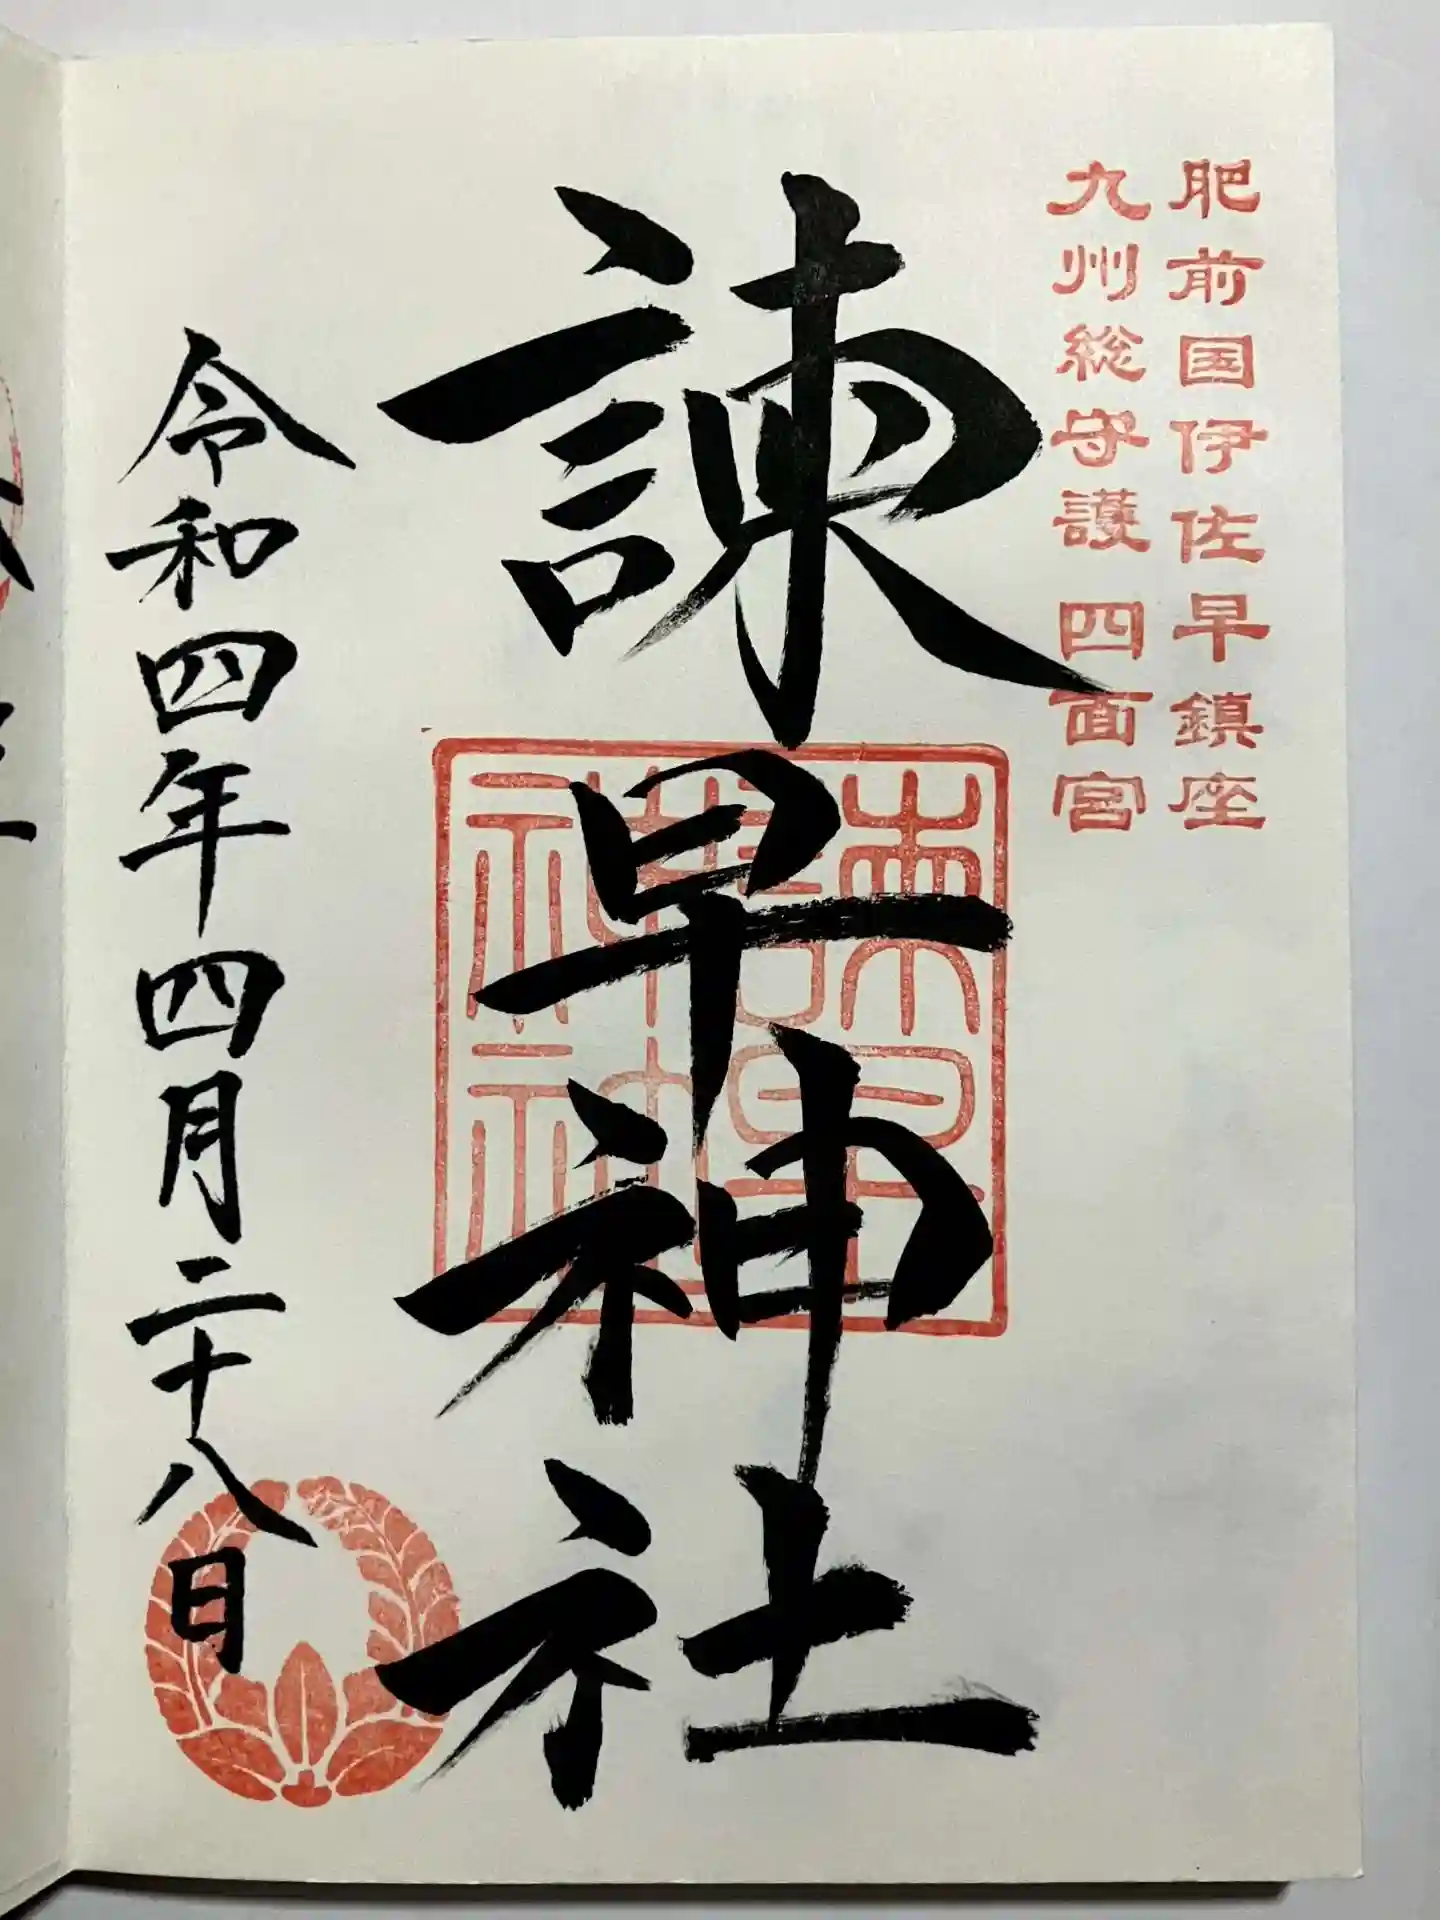 肥前国伊佐早鎮座
九州総守護 四面宮
諫早神社
諫早
神社
令和四年四月二十八日